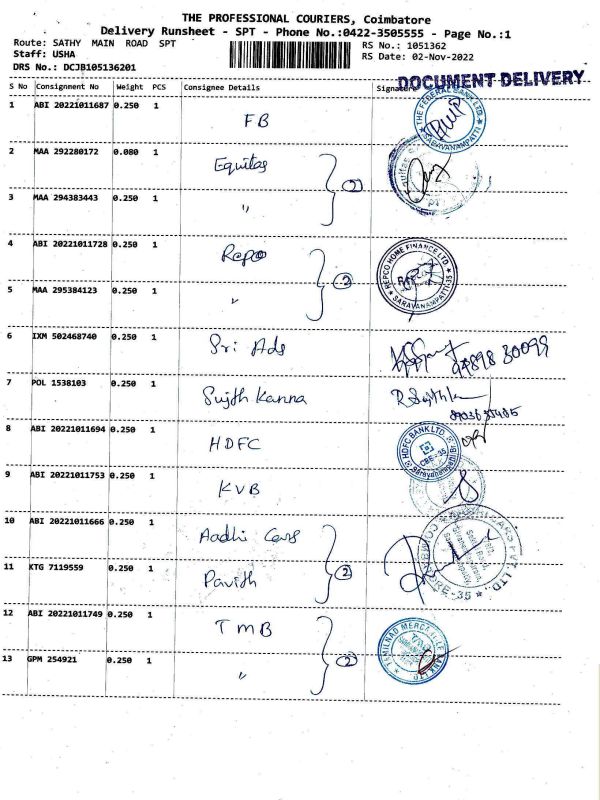 THE PROFESSIONAL COURIERS, Coimbatore
Delivery Runsheet - SPT - Phone No.:0422-3505555 - Page No.:1
Route: SATHY MAIN ROAD SPT
RS No.: 1051362
Staff: USHA
RS Date: 02-Nov-2022
DRS No.: DCJB105136201
DOCUMENT DELIVERY
S No Consignment No Weight PCS Consignee Details Signature
1 ABI 20221011687 0.250 1 FB
THE FEDERAL BANK LTD. SARAVANAMPATTI
2 MAA 292280172 0.080 1 Equitas
2
3 MAA 294383443 0.250 1 "
4 ABI 20221011728 0.250 1 Repco
2
REPCO HOME FINANCE LTD ★ SARAVANAMPATTI-35 ★
5 MAA 295384123 0.250 1 "
6 IXM 502468740 0.250 1 Sri Ads
7 POL 1538103 0.250 1 Sujith Kanna
8 ABI 20221011694 0.250 1 HDFC
HDFC BANK LTD. CBE-35
9 ABI 20221011753 0.250 1 KVB
10 ABI 20221011666 0.250 1 Aadhi Cars
2
11 KTG 7119559 0.250 1 Pavith
12 ABI 20221011749 0.250 1 TMB
2
TAMILNAD MERCANTILE BANK LTD
13 GPM 254921 0.250 1 "